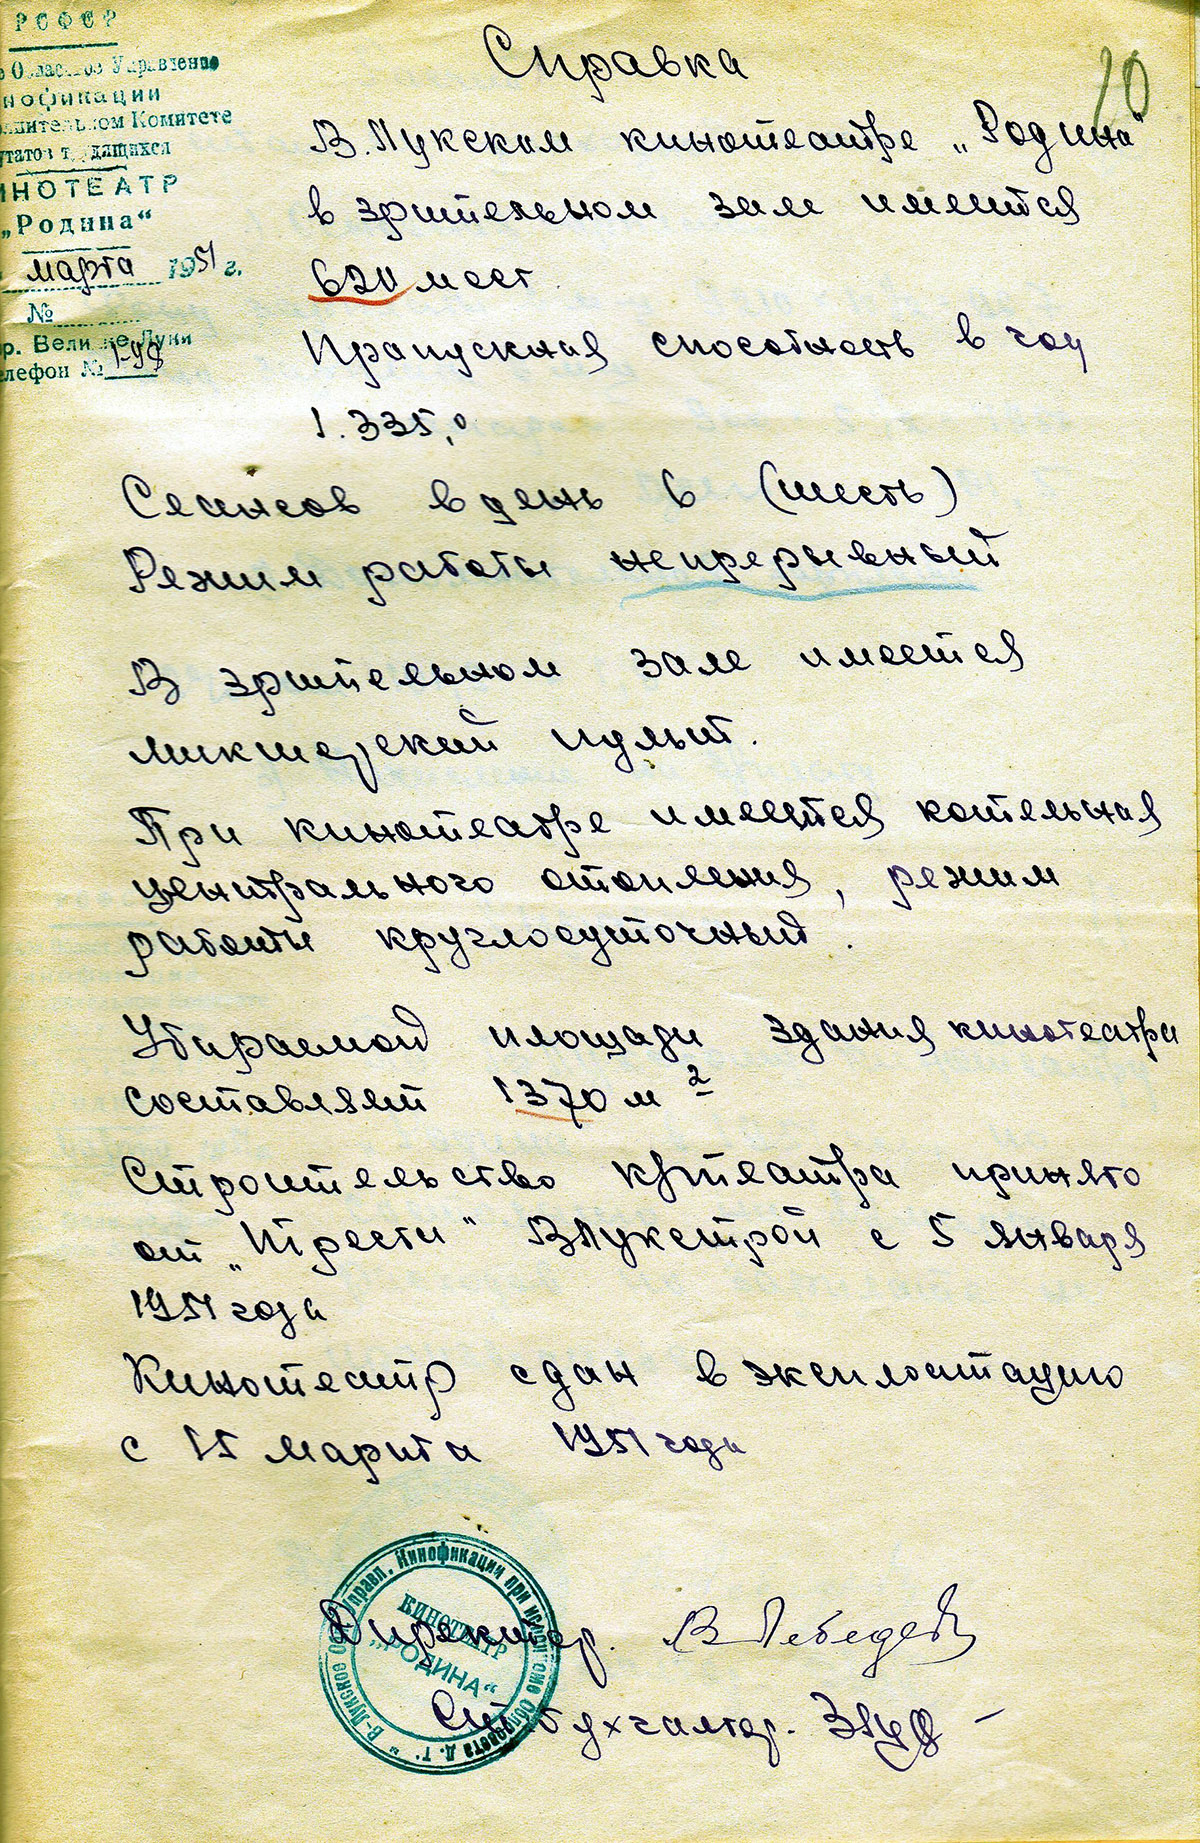 РСФСР
Областное Управление
инофикации
лнительном Комитете
утатов трудящихся
ИНОТЕАТР
„Родина“
марта 1951 г.
№
ор. Великие Луки
елефон № 1-98
20
Справка
В.Лукском кинотеатре „Родина“
в зрительном зале имеется
620 мест.
Пропускная способность в год
1.335,0
Сеансов в день 6 (шесть)
Режим работы непрерывный
В зрительном зале имеется
микшерский пульт.
При кинотеатре имеется котельная
центрального отопления, режим
работы круглосуточный.
Убираемой площади здания кинотеатра
составляет 1370 м2
Строительство к/театра принято
от „Треста“ ВЛукстрой с 5 января
1951 года
Кинотеатр сдан в эксплоатацию
с 15 марта 1951 года
Директор. В Лебедев
Ст бухгалтер.
В-Лукское Обл. Управл. Кинофикации при
КИНОТЕАТР
„РОДИНА“